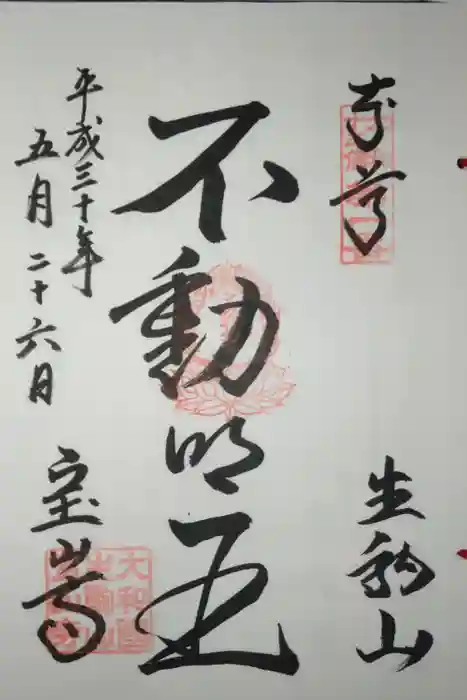 奉拝
生駒山
不動明王
平成三十年
五月二十六日
宝山寺
大和國
生駒山
宝山寺